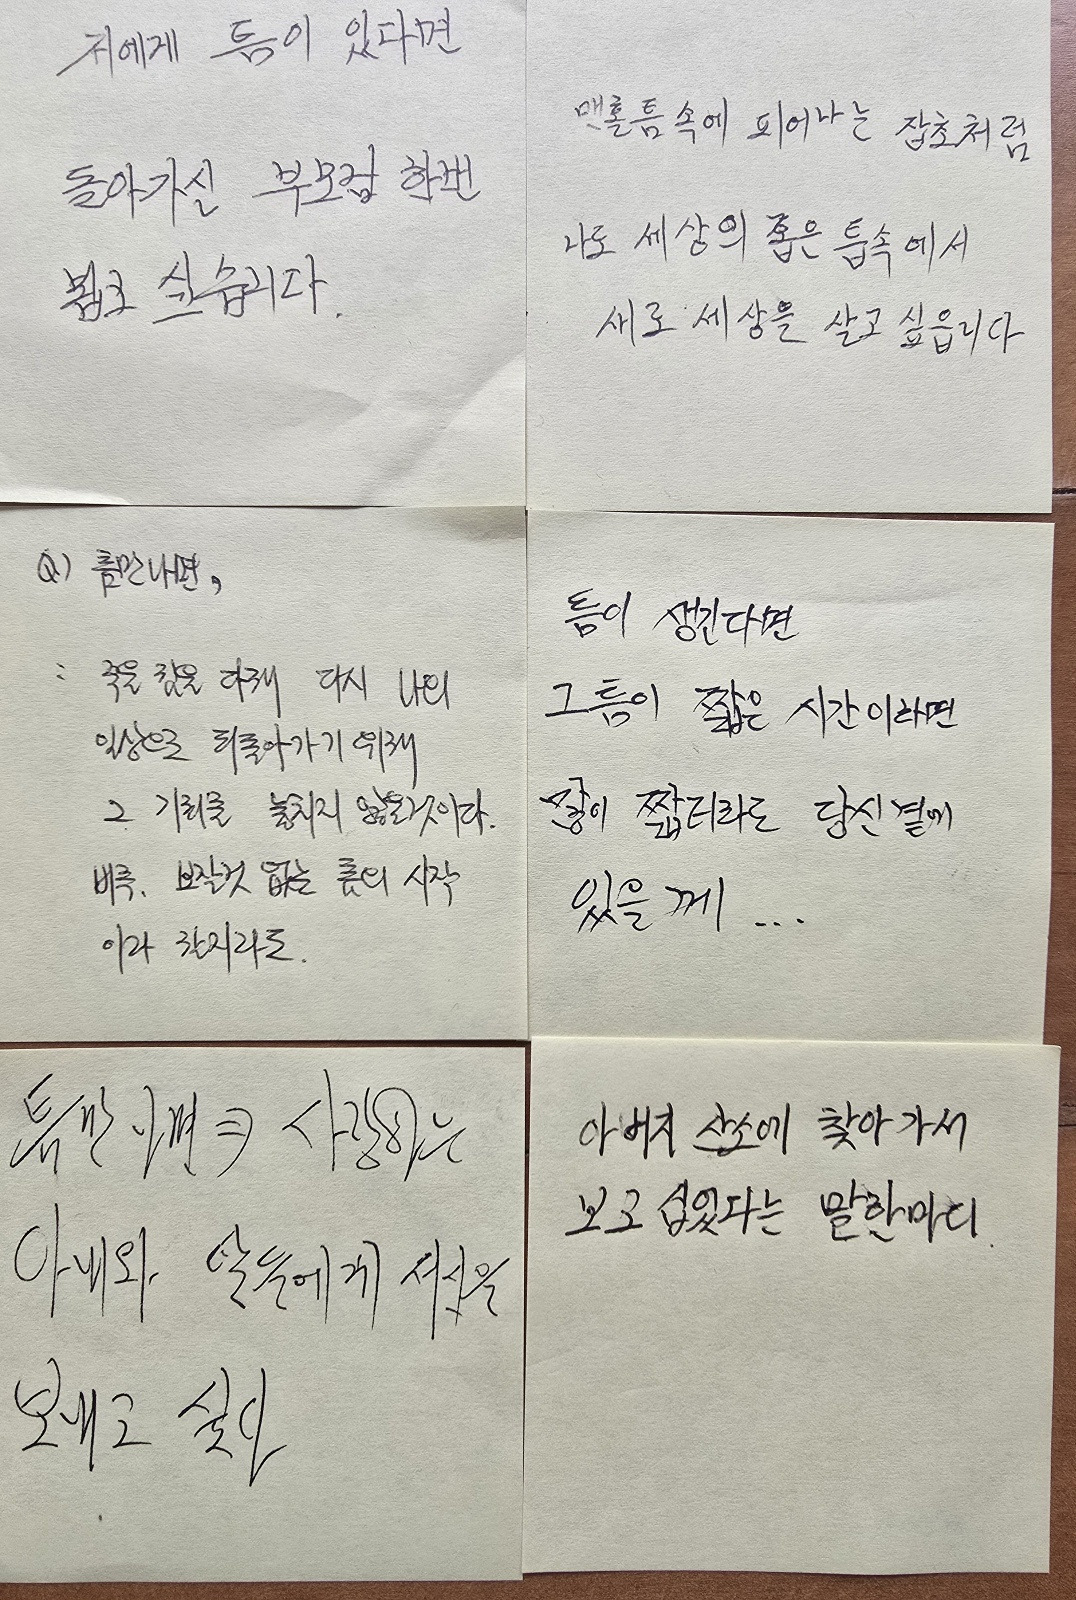 저에게 틈이 있다면
돌아가신 부모님 한번
뵙고 싶습니다.
맨홀틈속에 피어나는 잡초처럼
나도 세상의 좁은 틈속에서
새로 세상을 살고 싶읍니다
Q) 틈만나면,
: 죽을 힘을 다해 다시 나의
일상으로 되돌아가기 위해
그 기회를 놓치지 않을것이다.
비록, 보잘것 없는 틈의 시작
이라 할지라도.
틈이 생긴다면
그 틈이 짧은 시간이라면
많이 짧더라도 당신 곁에
있을께 ...
틈만나면 사랑하는
아내와 딸들에게 서신을
보내고 싶다
아버지 산소에 찾아가서
보고 섭었다는 말한마디.